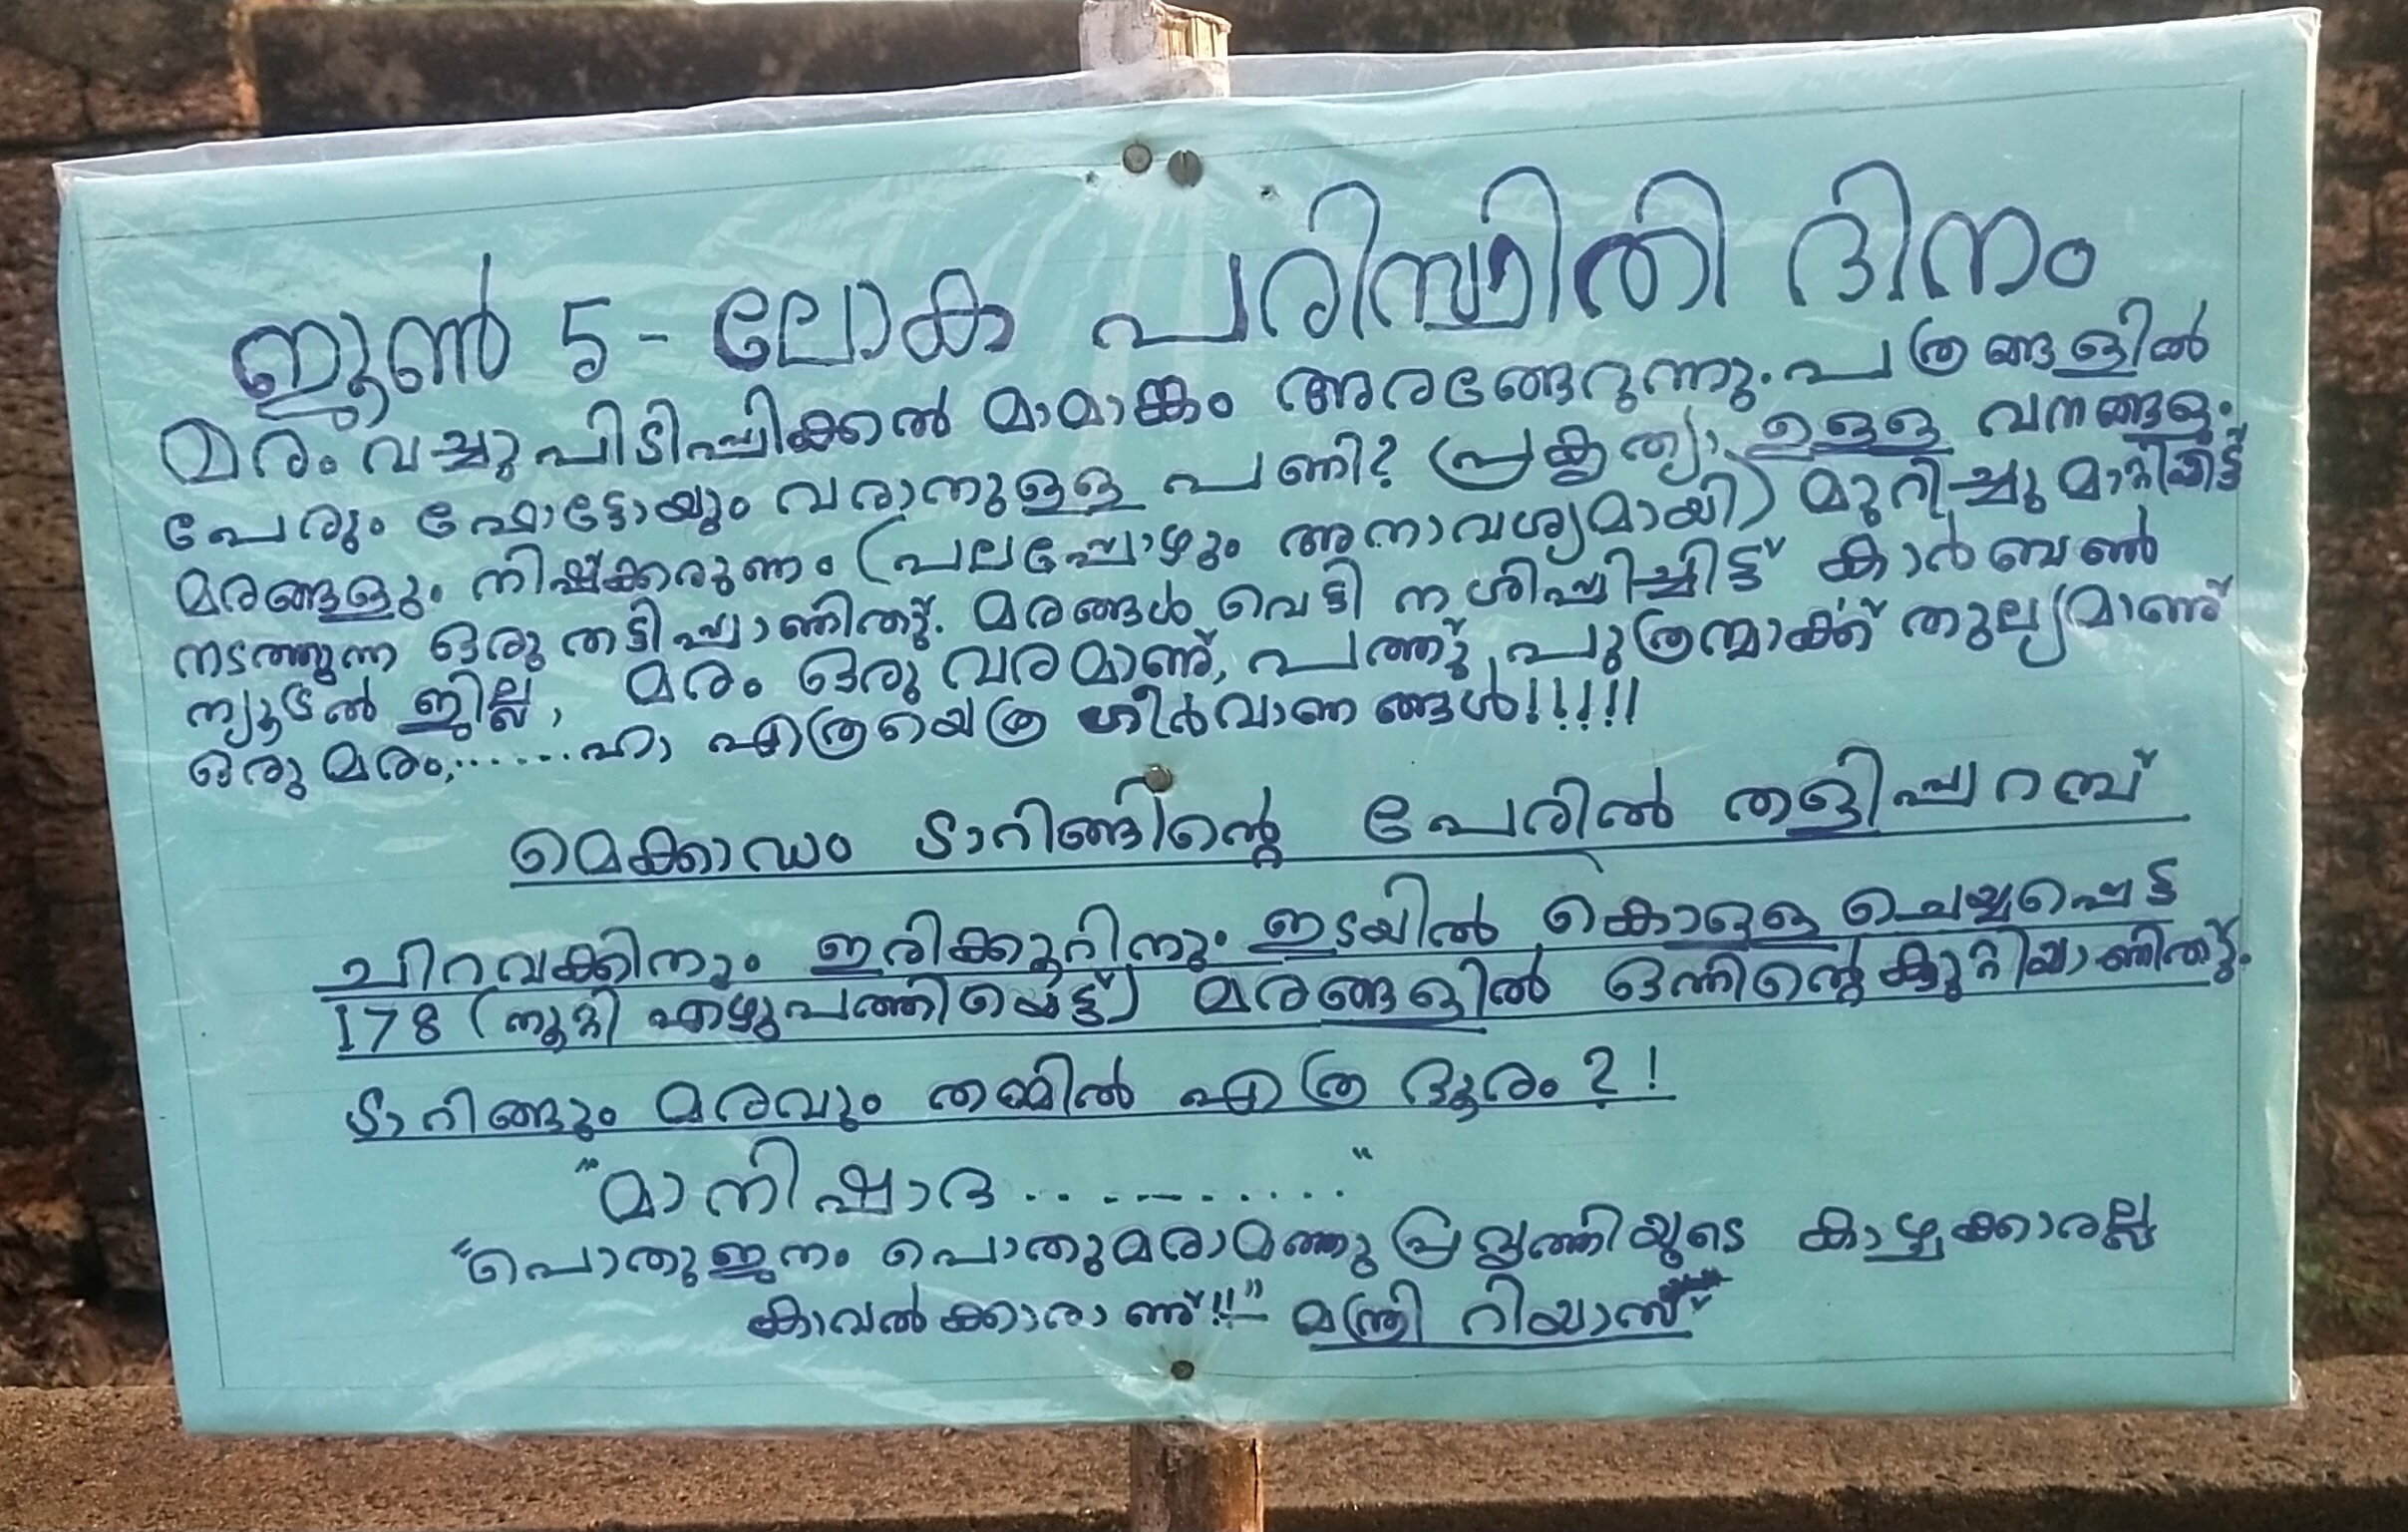 ജൂൺ 5 - ലോക പരിസ്ഥിതി ദിനം
മരം വച്ചുപിടിപ്പിക്കൽ മാമാങ്കം അരങ്ങേറുന്നു. പത്രങ്ങളിൽ
പേരും ഫോട്ടോയും വരാനുള്ള പണി? പ്രകൃത്യാ ഉള്ള വനങ്ങളും
മരങ്ങളും നിഷ്ക്കരുണം (പലപ്പോഴും അനാവശ്യമായി) മുറിച്ചുമാറ്റിയിട്ട്
നടത്തുന്ന ഒരു തട്ടിപ്പാണിത്. മരങ്ങൾ വെട്ടി നശിപ്പിച്ചിട്ട് കാർബൺ
ന്യൂട്രൽ ജില്ല, മരം ഒരു വരമാണ്, പത്തു പുത്രന്മാക്ക് തുല്യമാണ്
ഒരു മരം,......ഹാ എത്രയെത്ര ഗീർവാണങ്ങൾ!!!!!
മെക്കാഡം ടാറിങ്ങിന്റെ പേരിൽ തളിപ്പറമ്പ്
ചിറവക്കിനും ഇരിക്കൂറിനും ഇടയിൽ കൊള്ള ചെയ്യപ്പെട്ട
178 (നൂറ്റി എഴുപത്തിയെട്ട്) മരങ്ങളിൽ ഒന്നിന്റെ കുറ്റിയാണിത്.
ടാറിങ്ങും മരവും തമ്മിൽ എത്ര ദൂരം ?!
"മാനിഷാദ..........."
"പൊതുജനം പൊതുമരാമത്തു പ്രവൃത്തിയുടെ കാഴ്ചക്കാരല്ല
കാവൽക്കാരാണ്!!" മന്ത്രി റിയാസ്